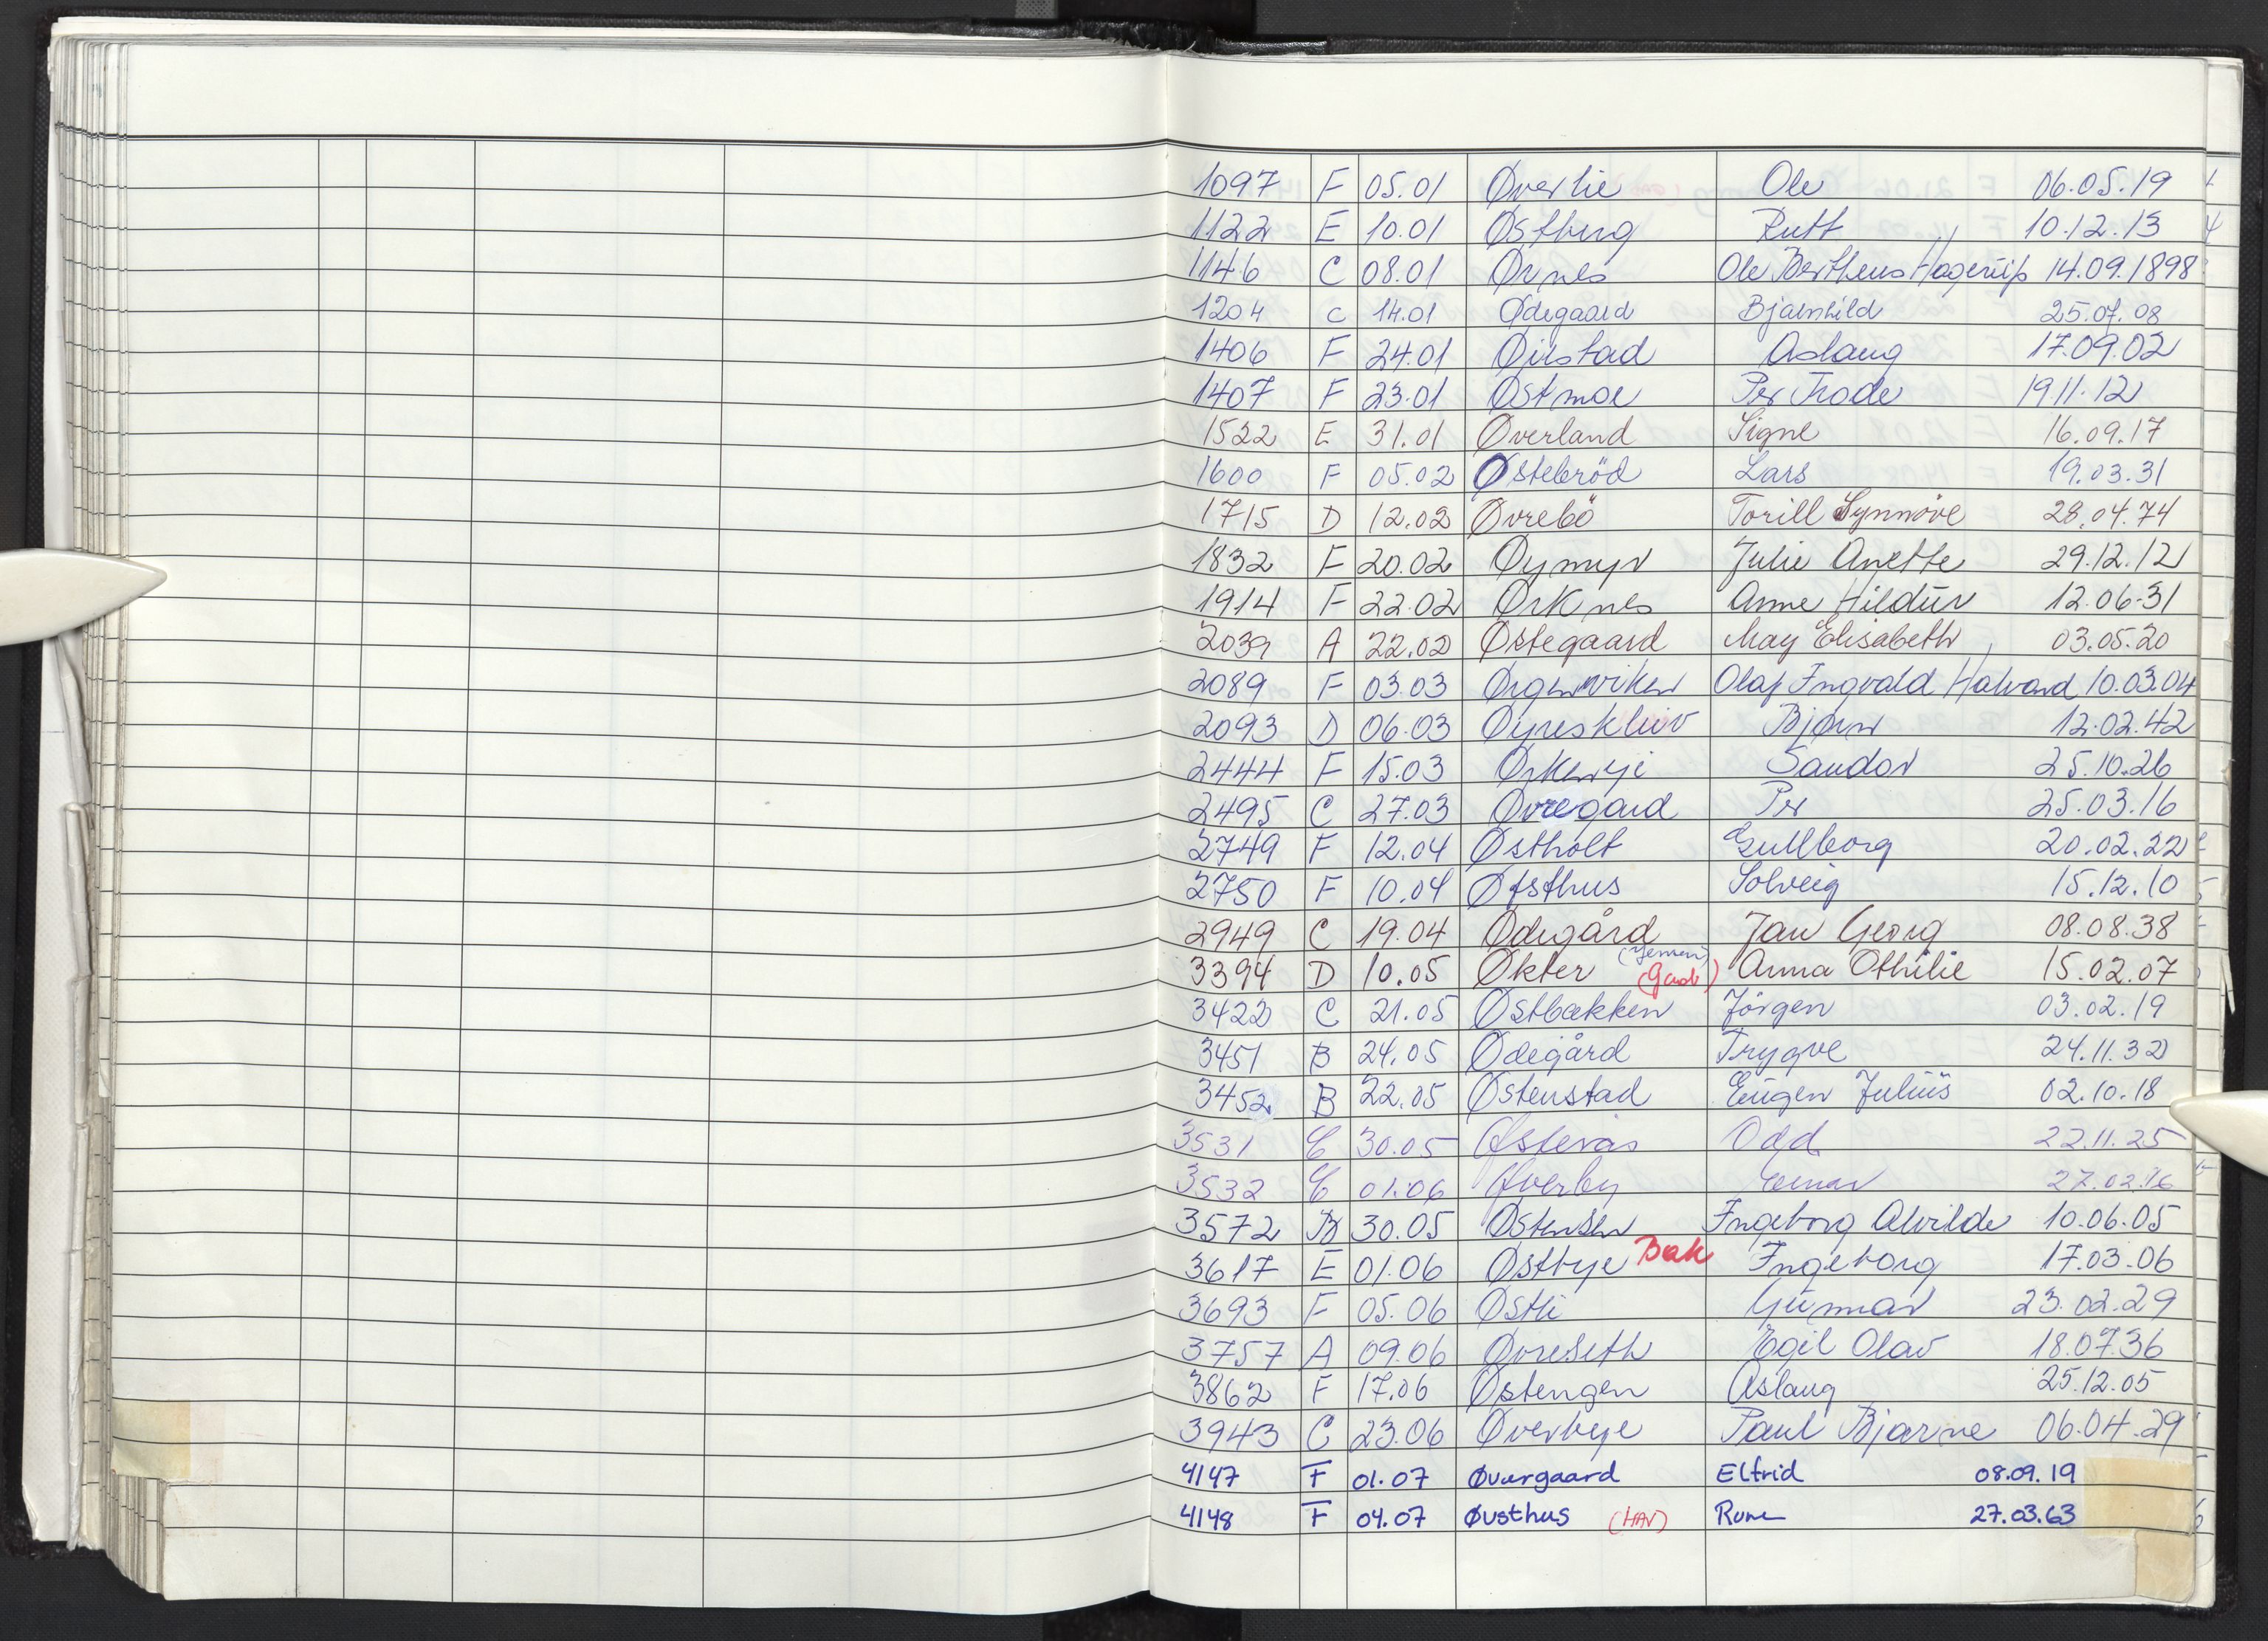 1097 F 05.01 Øverlie Ole 06.05.19
1122 E 10.01 Østberg Rutt 10.12.13
1146 C 08.01 Ørnes Ole Bertheus Hagerup 14.09.1898
1204 C 14.01 Ødegaard Bjarnhild 25.07.08
1406 F 24.01 Øistad Aslaug 17.09.02
1407 F 23.01 Østmoe Per Frode 19 11.12
1522 E 31.01 Øverland Signe 16.09.17
1600 F 05.02 Østebröd Lars 19.03.31
1715 D 12.02 Øvrebö Torill Synnöve 28.04.74
1832 F 20.02 Øymyr Julie Anette 29.12.12
1914 F 22.02 Ørknes Anne Hildur 12.06.31
2039 A 22.02 Østegaard May Elisabeth 03.05.20
2089 F 03.03 Ørgenviken Olaf Ingvald Halvard 10.03.04
2093 D 06.03 Øyreskliiv Bjørn 12.02.42
2444 F 15.03 Ørkenyi Sandor 25.10.26
2495 C 27.03 Øvregard Per 25.03.16
2749 F 12.04 Østholt Gullborg 20.02.22
2750 F 10.04 Øfsthus Solveig 15.12.10
2949 C 19.04 Ødegård Jan Georg 08.08.38
3394 D 10.05 Økter (Yemen) (Gad) Anna Othilie 15.02.07
3422 C 21.05 Østbakken Jörgen 03.02.19
3451 B 24.05 Ødegård Trygve 24.11.32
3452 B 22.05 Østenstad Eugen Julius 02.10.18
3531 C 30.05 Østerås Odd 22.11.25
3532 C 01.06 Øverby Einar 27.02.16
3572 B 30.05 Østensen Ingeborg Alvilde 10.06.05
3617 E 01.06 Østbye Bak Ingeborg 17.03.06
3693 F 05.06 Østli Gunnar 23.02.29
3757 A 09.06 Øvreseth Egil Olav 18.07.36
3862 F 17.06 Østengen Aslaug 25.12.05
3943 C 23.06 Øverbye Paul Bjarne 06.04.29
4147 F 01.07 Øvergaard Elfrid 08.09.19
4148 F 04.07 Øvsthus (HAV) Rune 27.03.63